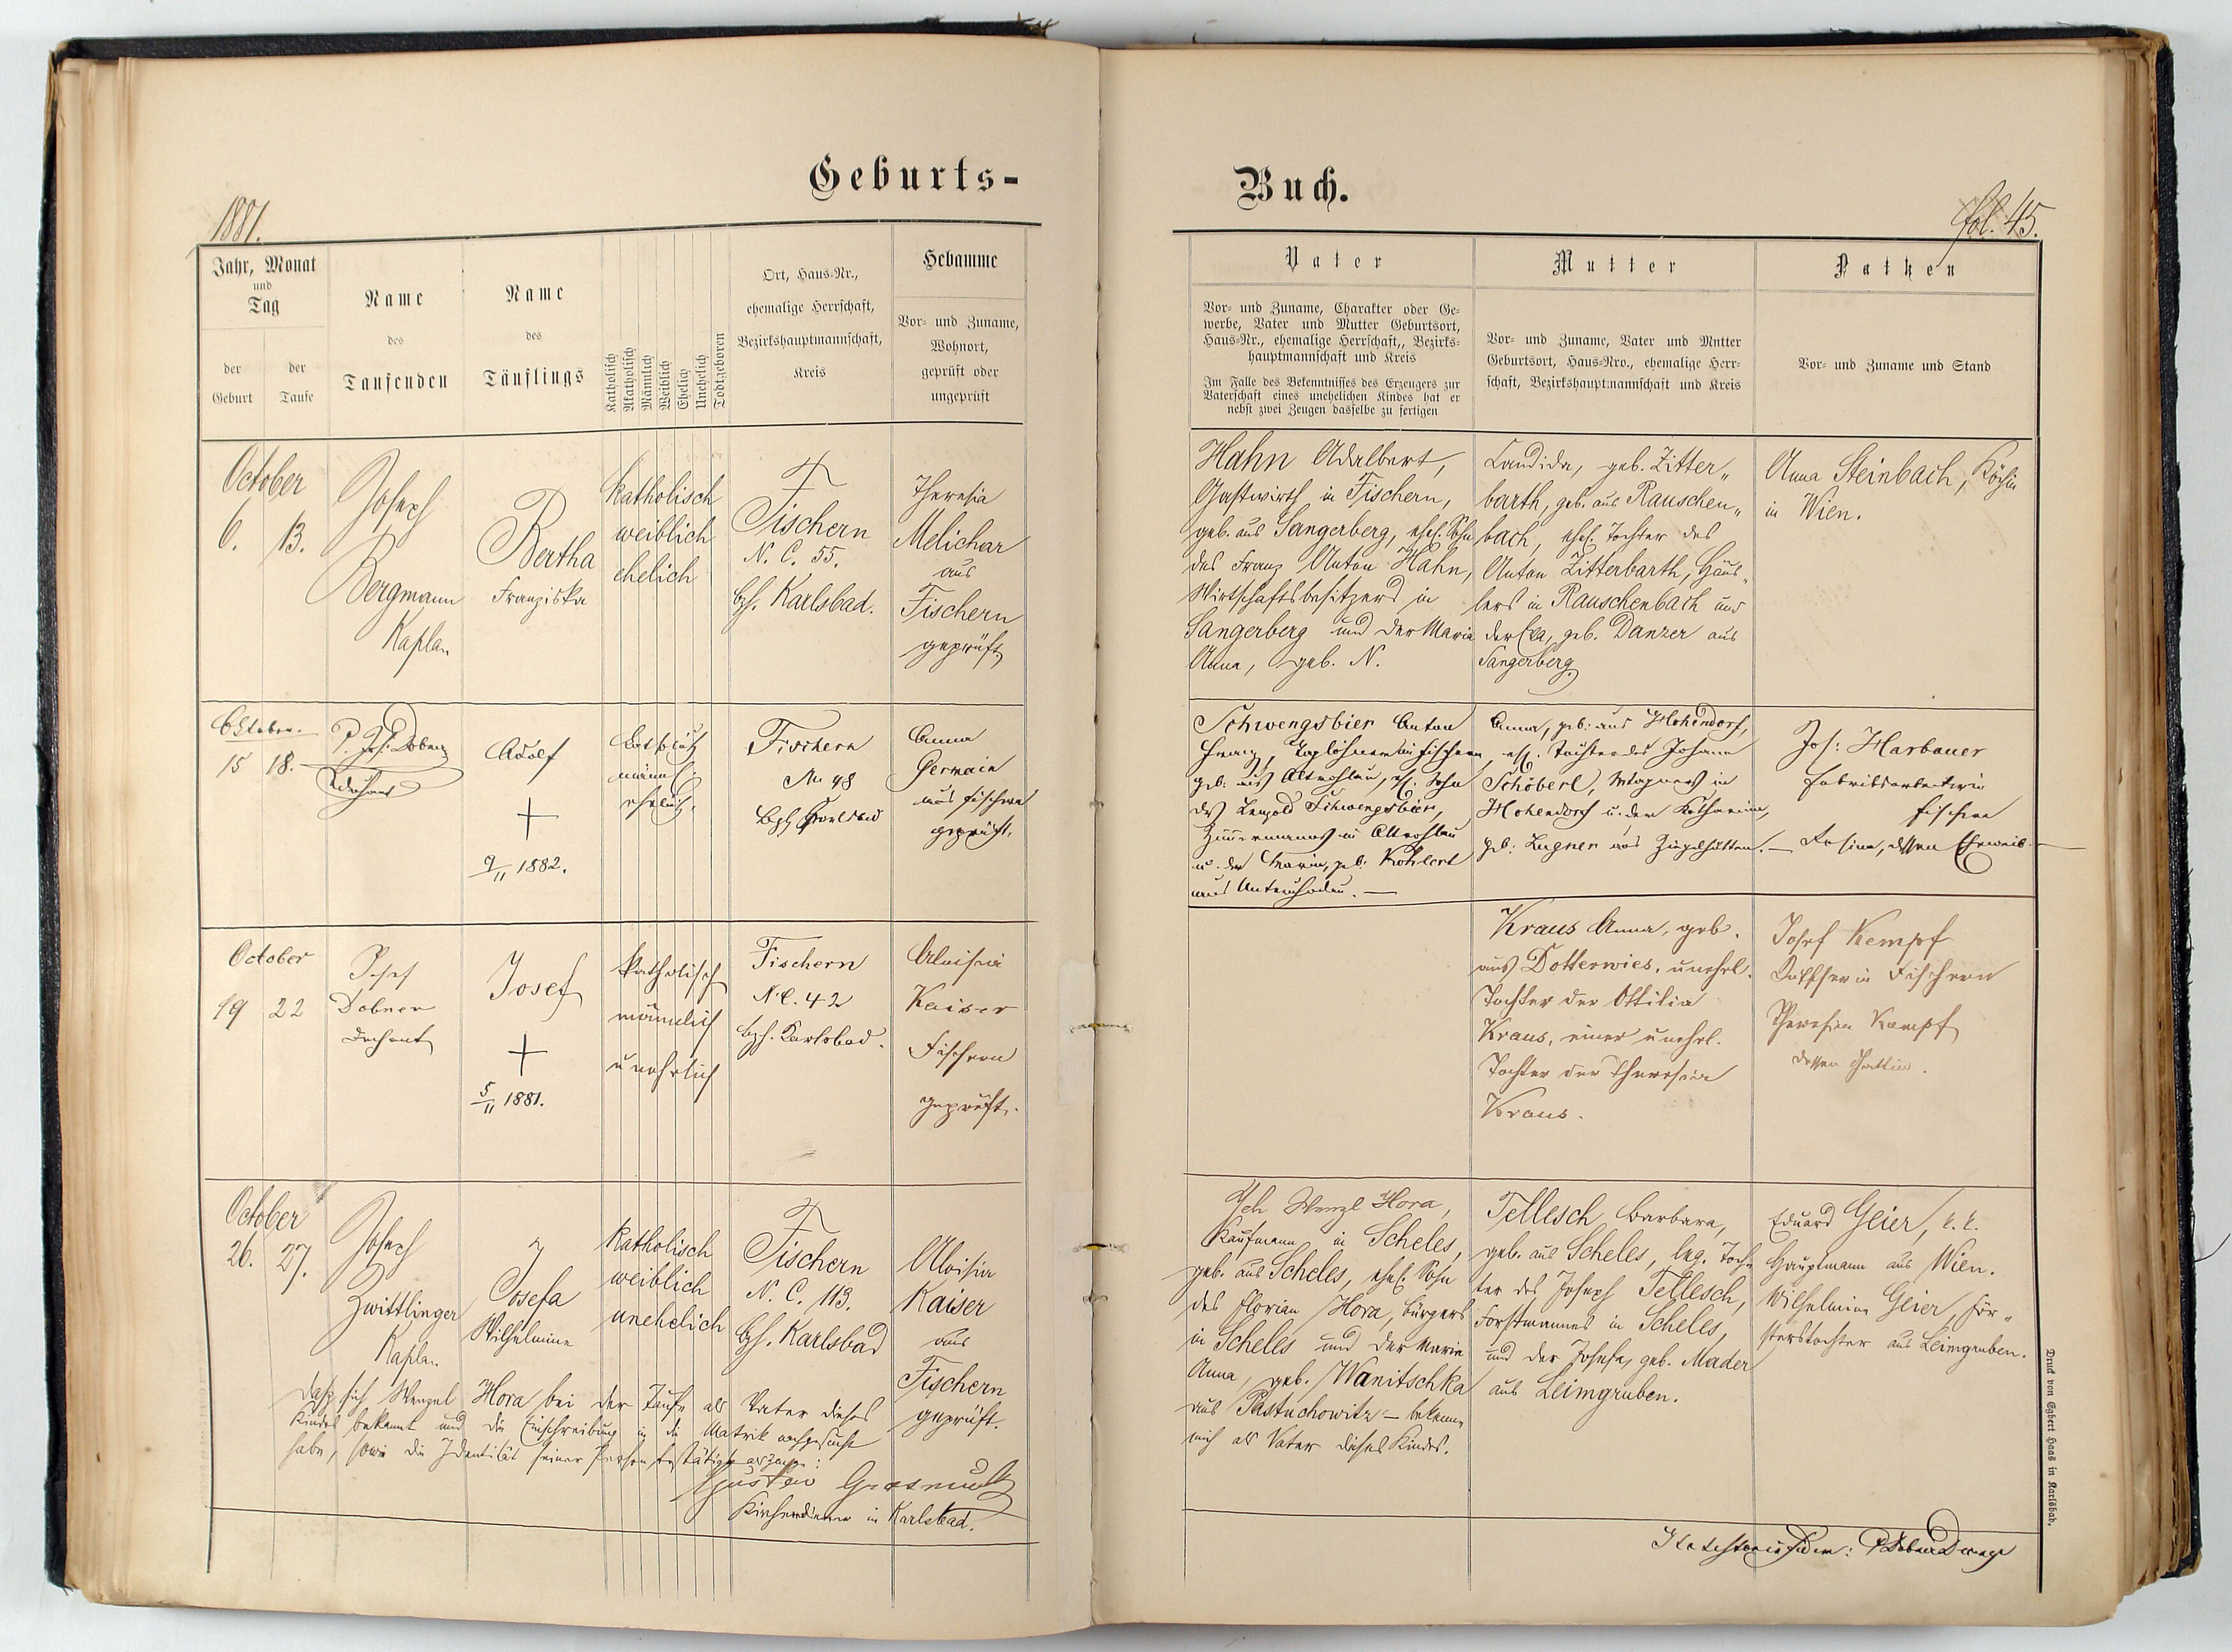 Geburts-
1881.
Jahr, Monat
und
Tag
der
Geburt
der
Taufe
Name
des
Taufenden
Name
des
Täuflings
Katholisch
Akatholisch
Männlich
Weiblich
Ehelich
Unehelich
Todtgeboren
Ort, Haus-Nr.,
ehemalige Herrschaft,
Bezirkshauptmannschaft,
Kreis
Hebamme
Vor- und Zuname,
Wohnort,
geprüft oder
ungeprüft
October
6. 13.
Joseph
Bergmann
Kaplan
Bertha
Franziska
katholisch
weiblich
ehelich
Fischern
N. C. 55.
bzh. Karlsbad.
Theresia
Melichar
aus
Fischern
geprüft.
Oktober.
15 18.
P. Jos. Dobner
Dechant
Adolf
+
9/11 1882.
katholisch
männl.
ehelich.
Fischern
No 48
Bzh Karlsbad
Anna
Germain
aus Fischern
geprüft.
October
19 22
Josef
Dobner
Dechant
Josef
+
5/11 1881.
katholisch
männlich
unehelich
Fischern
N.C. 42
bzh. Karlsbad.
Aloisia
Kaiser
Fischern
geprüft.
October
26. 27.
Joseph
Zwittlinger
Kaplan
Josefa
Wilhelmine
katholisch
weiblich
unehelich
Fischern
N. C. 113.
bzh. Karlsbad
Aloisia
Kaiser
aus
Fischern
geprüft.
Daß sich Wenzel Hora bei der Taufe als Vater dieses
Kindes bekannt und die Einschreibung in die Matrik nachgesucht
habe, sowie die Identität seiner Person bestätigt als Zeuge:
Gustav
Kirchendiener in Karlsbad.
Buch.
fol. 45.
Vater
Vor- und Zuname, Charakter oder Ge-
werbe, Vater und Mutter Geburtsort,
Haus-Nr., ehemalige Herrschaft,, Bezirks-
hauptmannschaft und Kreis
Im Falle des Bekenntnisses des Erzeugers zur
Vaterschaft eines unehelichen Kindes hat er
nebst zwei Zeugen dasselbe zu fertigen
Mutter
Vor- und Zuname, Vater und Mutter
Geburtsort, Haus-Nro., ehemalige Herr-
schaft, Bezirkshauptmannschaft und Kreis
Pathen
Vor- und Zuname und Stand
Hahn Adalbert,
Gastwirth in Fischern,
geb. aus Sangerberg, ehel. Sohn
des Franz Anton Hahn,
Wirtschaftsbesitzers in
Sangerberg und der Maria
Anna, geb. N.
Candida, geb. Zitter„
barth, geb. aus Rauschen„
bach, ehel. Tochter des
Anton Zitterbarth, Häus„
lers in Rauschenbach und
der Eva, geb. Danzer aus
Sangerberg.
Anna Steinbach, Köchin
in Wien.
Schwengsbier Anton
Franz, Taglöhner in Fischern
geb. aus Altrohlau, ehl. Sohn
des Leopold Schwengsbier,
Zimmermanns in Altrohlau
u. der Maria, geb. Köhlert
aus Unterchodau. —
Anna, geb. aus Hohendorf,
ehl. Tochter des Johann
Schöberl, Wagners in
Hohendorf u. der Katharina,
geb. Lugner aus Ziegelhütten. —
Jos: Harbauer
Fabriksarbeiter in
Fischern
Rosina, dessen Eheweib. —
Kraus Anna, geb.
aus Dotterwies, unehel.
Tochter der Ottilia
Kraus, einer unehel.
Tochter der Theresia
Kraus.
Josef Kempf
in Fischern
Theresia Kempf
dessen Gattin.
Ich Wenzl Hora,
Kaufmann in Scheles,
geb. aus Scheles, ehel. Sohn
des Florian Hora, Bürgers
in Schelles und der Maria
Anna, geb. Wanitschka
aus Pastuchowitz — bekenne
mich als Vater dieses Kindes.
Tellesch Barbara,
geb. aus Scheles, leg. Toch„
ter des Joseph Tellesch,
Forstmannes in Scheles,
und der Josefa, geb. Mader
aus Leimgruben.
Eduard Geier, k. k.
Hauptmann aus Wien.
Wilhelmine Geier, För„
sterstochter aus Leimgruben.
Druck von Egbert Haas in Karlsbad.